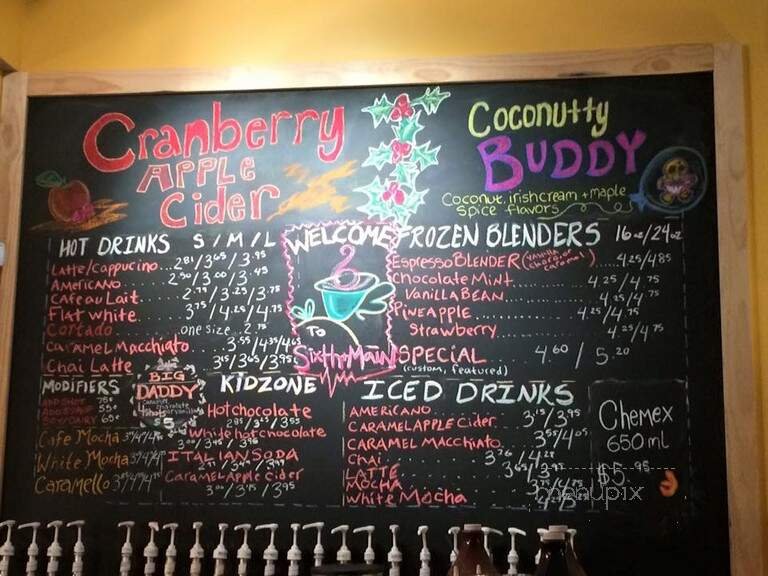 Cranberry
APPLE
Cider
Coconutty
BUDDY
Coconut, irish cream + maple
spice flavors
HOT DRINKS S / M / L
Latte/cappucino... 2.81 / 3.65 / 3.95
AMERICANO 2.50 / 3.00 / 3.45
CAFE au LAit 2.79 / 3.25 / 3.75
Flat white 3.75 / 4.25 / 4.75
Cortado one size 2.75
CARAMEL MACchiato 3.55 / 4.35 / 4.65
Chai Latte 3.15 / 3.65 / 3.95
WELCOME
6
To
Sixth + MAiN
FROZEN BLENDERS 16oz/24oz
Espresso BLENDER (vanilla, choco, or caramel) 4.25/4.85
Chocolate Mint 4.25 / 4.75
VANilla BEAN 4.25 / 4.75
PiNEAPPLE 4.25 / 4.75
Strawberry 4.25 / 4.75
SPECIAL 4.60 / 5.20
(custom, featured)
MODIFIERS
ADD SHOT 75¢
BIG
DADDY
$5
Cafe Mocha
White Mocha
Caramello
KIDZONE
Hot chocolate
2.85 / 3.25 / 3.55
White hot chocolate
3.00 / 3.45 /
ITALIAN SODA
CARAMEL Apple Cider
3.00 / 3.75 / 3.95
ICED DRINKS
AMERICANO 3.15 / 3.95
CARAMEL APPLE Cider
CARAMEL MACChiato 3.55 / 4.05
Chai
LATTE
MOCHA
White Mocha
Chemex
650 ml
$5.95
menupix